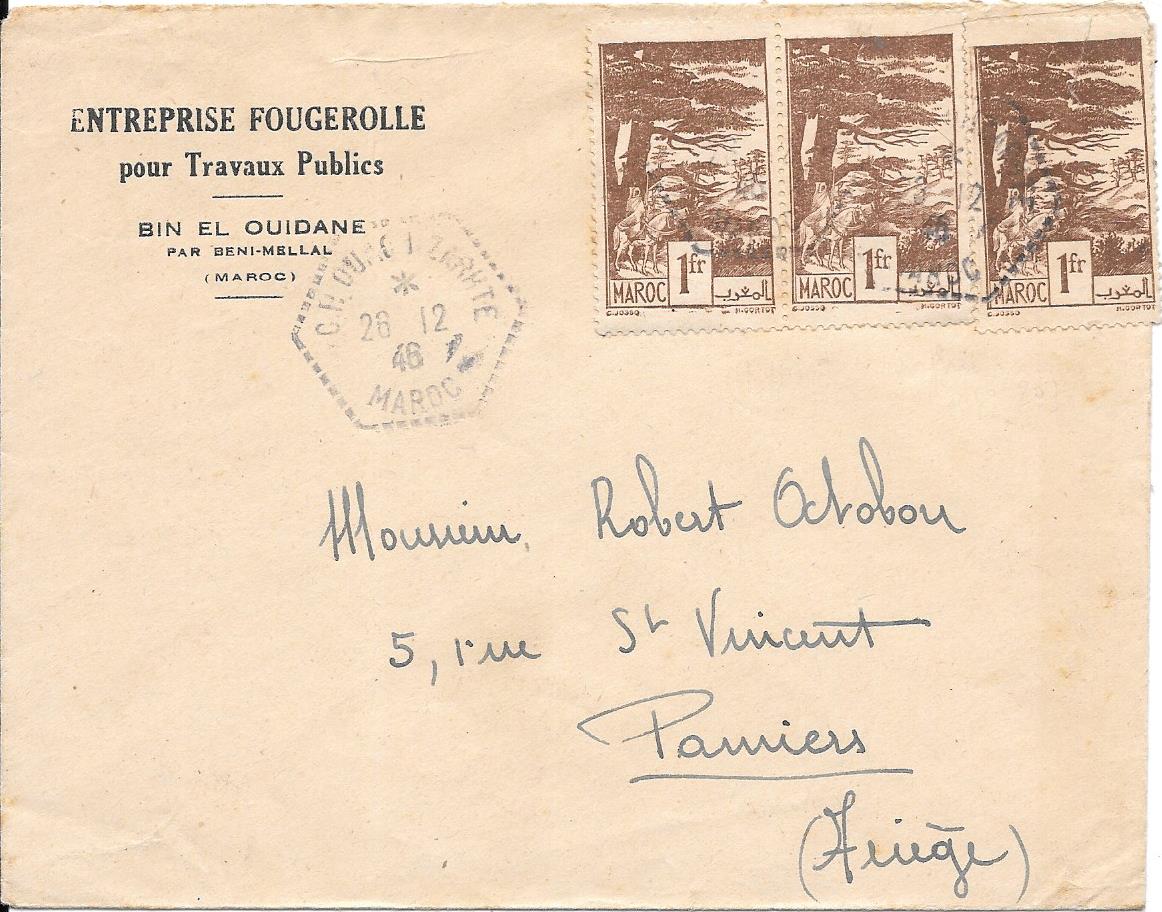 ENTREPRISE FOUGEROLLE
pour Travaux Publics
BIN EL OUIDANE
PAR BENI-MELLAL
(MAROC)
26 12
46
MAROC
1fr
MAROC المغرب
C.JOSSO H.CORTOT
1fr
MAROC المغرب
C.JOSSO H.CORTOT
1fr
MAROC المغرب
C.JOSSO H.CORTOT
12
MAROC
Monsieur Robert Octobon
5, rue St Vincent
Pamiers
(Ariège)